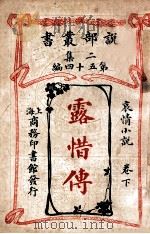 說部叢書
二集
第五十四編
哀情小說 卷下
露惜傳
上海
商務印書館發行